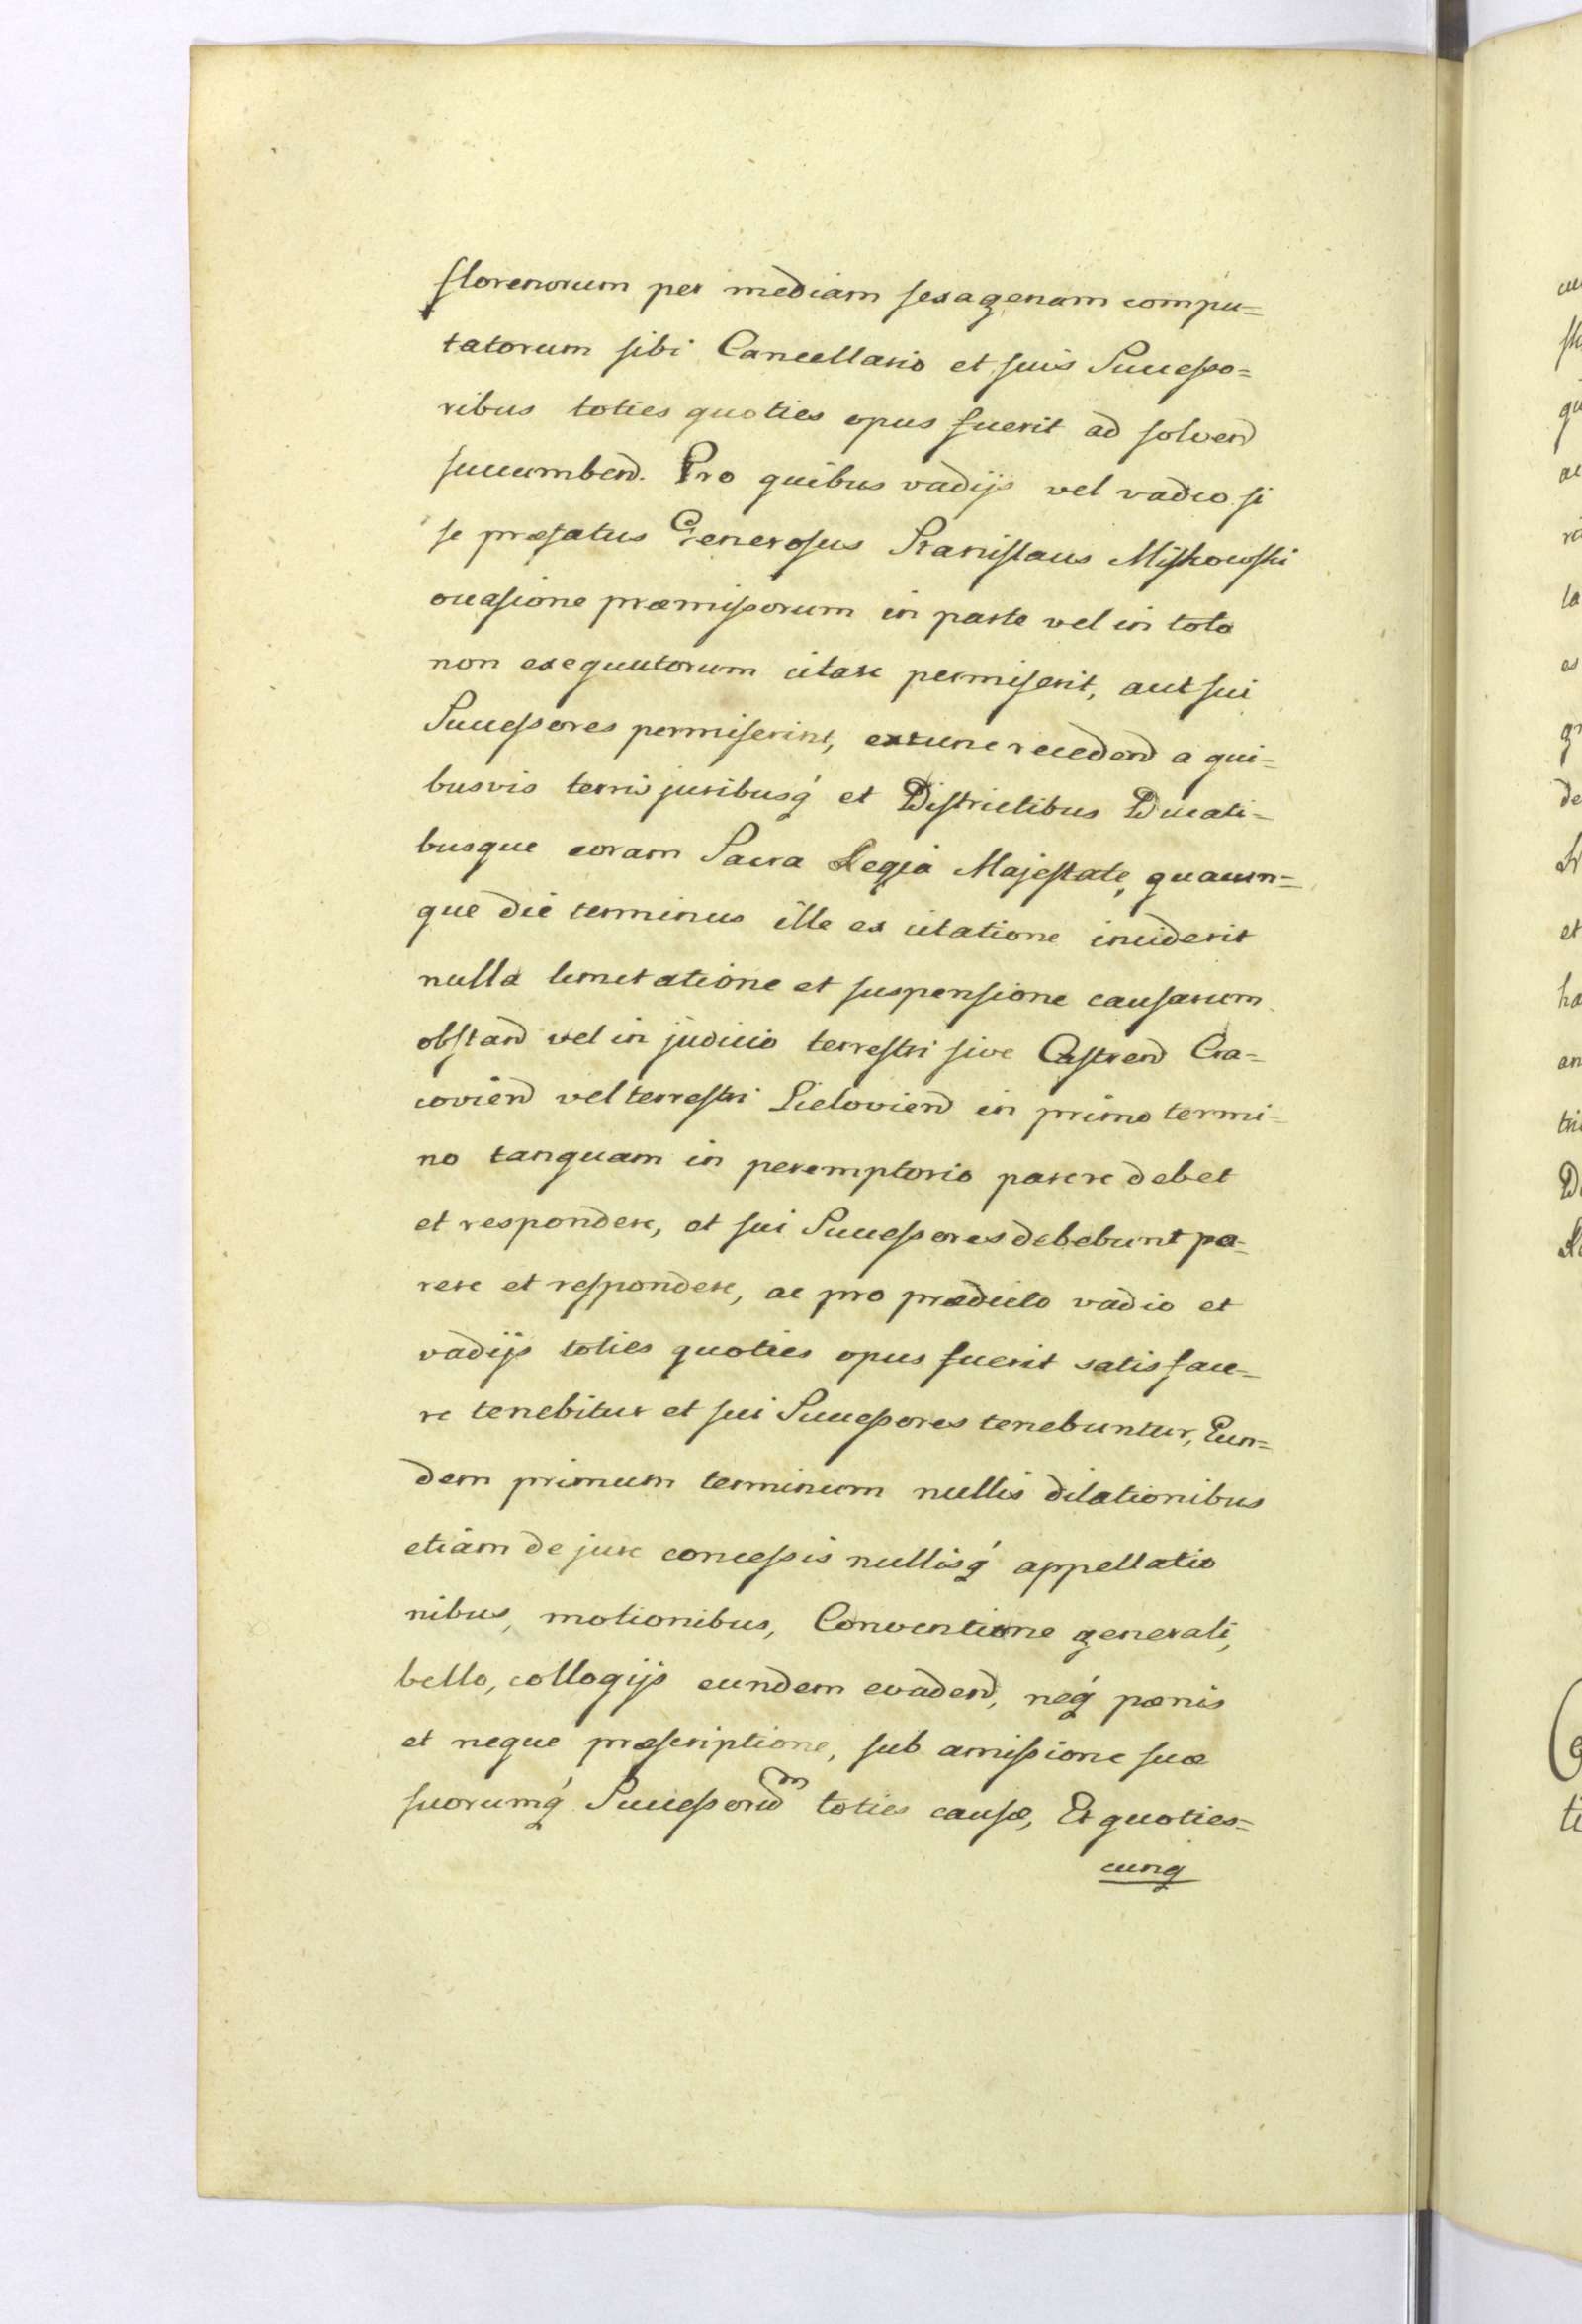 florenorum per mediam sexagenam compu=
tatorum sibi Cancellario et suis Successo=
ribus toties quoties opus fuerit ad solvend
succumbend. Pro quibus vadijs vel vadio si
se præfatus Generosus Stanislaus Miskowski
occasione præmissorum in parte vel in toto
non exequutorum citare permiserit, aut sui
Successores permiserint, extunc recedend a qui=
busvis terris juribusq́ et Districtibus Ducati=
busque coram Sacra Regia Majestate, quacun=
que die terminus ille ex citatione inciderit
nulla limitatione et suspensione causarum
obstand vel in judicio terrestri sive Castrend Cra=
coviend vel terrestri Lieloviend in primo termi=
no tanquam in peremptorio parere debet
et respondere, et sui Successores debebunt pa=
rere et respondere, ac pro prædicto vadio et
vadijs toties quoties opus fuerit satisface=
re tenebitur et sui Successores tenebuntur, Eun=
dem primum terminum nullis dilationibus
etiam de jure concessis nullisq́ appellatio
nibus, motionibus, Conventione generali,
bello, collogijs eundem evadend, neq́ pœnis
et neque præscriptione, sub amissione suæ
suorumq́ Successorum toties causæ, Et quoties=
cunq